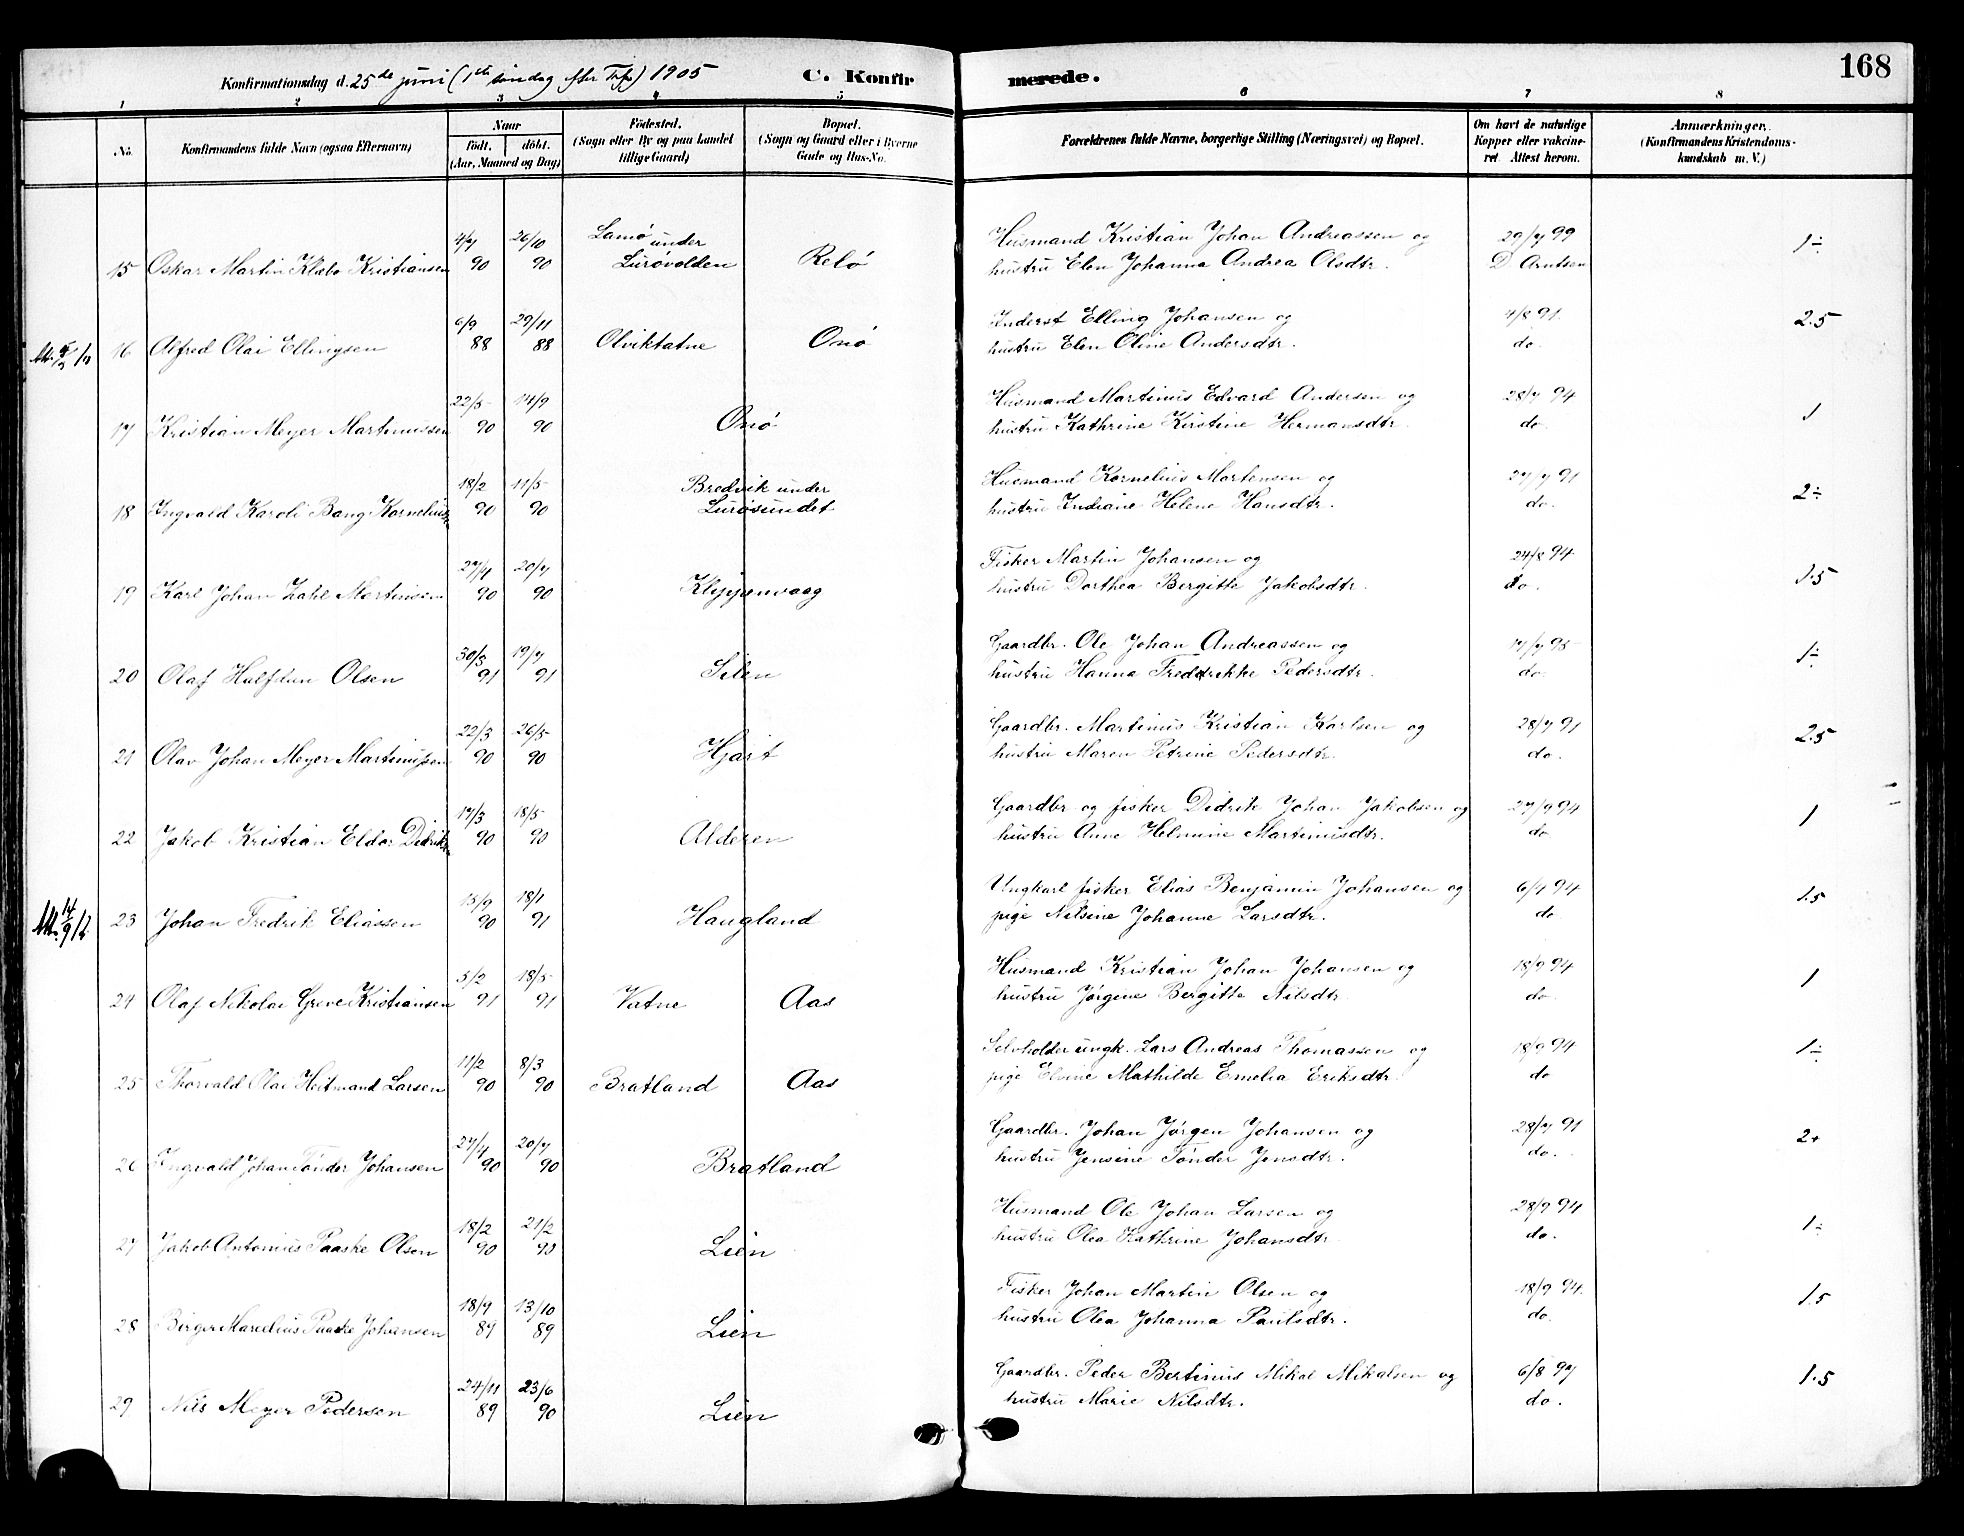 Konfirmationsdag d. 25de juni (1ste søndag efter Tref) 1905 C. Konfir merede. 168
1 2 3 4 5 6 7 8
No. Konfirmandens fulde Navn (ogsaa Efternavn) Naar født. døbt. (Aar, Maaned og Dag) Fødested. (Sogn eller By og paa Landet tillige Gaard) Bopæl. (Sogn og Gaard eller i Byerne Gade og Hus-No. Forældrenes fulde Navne, borgerlige Stilling (Næringsvei) og Bopæl. Om havt de naturlige Kopper eller vakcineret. Attest herom. Anmærkninger. (Konfirmandens Kristendomskundskab m. V.)
4/7 26/10 Lamø under Husmand Kristian Johan Andreassen og 29/7 99 1÷
15 Oskar Martin Klæbo Kristiansen 90 90 Lurøvolden Relø hustru Elen Johanna Andrea Olsdtr. D Arntsen
6/9 29/11 Inderst Elling Johansen og 4/8 91. 2.5
16 Alfred Olai Ellingsen 88 88 Olviktatne Onø hustru Elen Oline Andersdtr. do.
22/5 14/9 Husmand Martinus Edvard Andersen og 28/7 94
17 Kristian Meyer Martinussen 90 90 Onø hustru Kathrine Kirstine Hermansdtr. do. 1
18/2 11/5 Bredvik under Husmand Kornelius Mortensen og 27/7 91
18 Ingvald Karoli Bang Kornelius 90 90 Lurøsundet hustru Indiane Helene Hansdtr. do. 2÷
27/4 20/7 Fisker Martin Johansen og 24/8 94
19 Karl Johan Zahl Martinsen 90 90 Klippenvaag hustru Dorthea Bergitte Jakobsdtr. do. 1.5
30/3 19/7 Gaardbr. Ole Johan Andreassen og 17/7 95
20 Olaf Halfdan Olsen 91 91 Silen hustru Hanna Fredrikke Pedersdtr. do. 1÷
22/3 26/5 Gaardbr. Martinus Kristian Karlsen og 28/7 91
21 Olav Johan Meyer Martinussen 90 90 Hjart hustru Maren Petrine Pedersdtr. do. 2.5
17/3 18/5 Gaardbr og fisker Didrik Johan Jakobsen og 27/9 94
22 Jakob Kristian Eldor Didriks 90 90 Alderen hustru Anne Helmine Martinusdtr. do. 1
15/9 18/1 Ungkarl fisker Elias Benjamin Johansen og 6/4 94
23 Johan Fredrik Eliassen 90 91 Haugland pige Nilsine Johanne Larsdtr. do 1.5
5/2 18/5 Husmand Kristian Johan Johansen og 18/9 94
24 Olaf Nikolai Greve Kristiansen 91 91 Vatne Aas hustru Jørgine Bergitte Nilsdtr. do. 1
11/2 8/3 Selvholder ungk. Lars Andreas Thomassen og 18/9 94 1÷
25 Thorvald Olai Heitmand Larsen 90 90 Bratland Aas pige Elvine Mathilde Emelia Eriksdtr. do
27/4 20/7 Gaardbr. Johan Jørgen Johansen og 28/7 91
26 Ingvald Johan Tønder Johansen 90 90 Bratland hustru Jensine Tønder Jensdtr. do. 2+
18/2 21/2 Husmand Ole Johan Larsen og 28/9 94
27 Jakob Antonius Paaske Olsen 90 90 Lien hustru Olea Kathrine Johansdtr. do. 1÷
18/9 13/10 Fisker Johan Martin Olsen og 18/9 94.
28 Birger Marelius Paaske Johansen 89 89 Lien hustru Olea Johanna Paulsdtr. do. 1.5
24/11 23/6 Gaardbr. Peder Bertinus Mikal Mikalsen og 6/8 97
29 Nils Meyer Pedersen 89 90 Lien hustru Marie Nilsdtr. do. 1.5